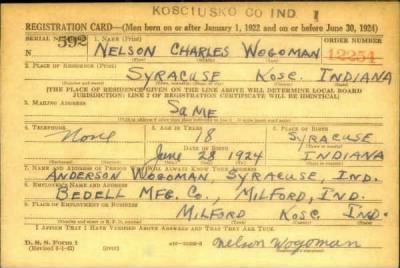 KOSCIUSKO CO IND. 1
REGISTRATION CARD—(Men born on or after January 1, 1922 and on or before June 30, 1924)
SERIAL NUMBER 1. NAME (Print) ORDER NUMBER
N 592 NELSON CHARLES WOGOMAN 12254
(First) (Middle) (Last)
2. PLACE OF RESIDENCE (Print)
SYRACUSE KOSC. INDIANA
(Number and street) (Town, township, village, or city) (County) (State)
[THE PLACE OF RESIDENCE GIVEN ON THE LINE ABOVE WILL DETERMINE LOCAL BOARD
JURISDICTION; LINE 2 OF REGISTRATION CERTIFICATE WILL BE IDENTICAL]
3. MAILING ADDRESS
SAME
4. TELEPHONE 5. AGE IN YEARS 6. PLACE OF BIRTH
None 18 SYRACUSE
DATE OF BIRTH
June 28 1924 INDIANA
7. NAME AND ADDRESS OF PERSON WHO WILL ALWAYS KNOW YOUR ADDRESS
ANDERSON WOGOMAN, SYRACUSE, IND.
8. EMPLOYER'S NAME AND ADDRESS
BEDELL MFG. CO., MILFORD, IND.
9. PLACE OF EMPLOYMENT OR BUSINESS
MILFORD KOSC. IND.
I AFFIRM THAT I HAVE VERIFIED ABOVE ANSWERS AND THAT THEY ARE TRUE.
D. S. S. Form 1
Nelson Wogoman